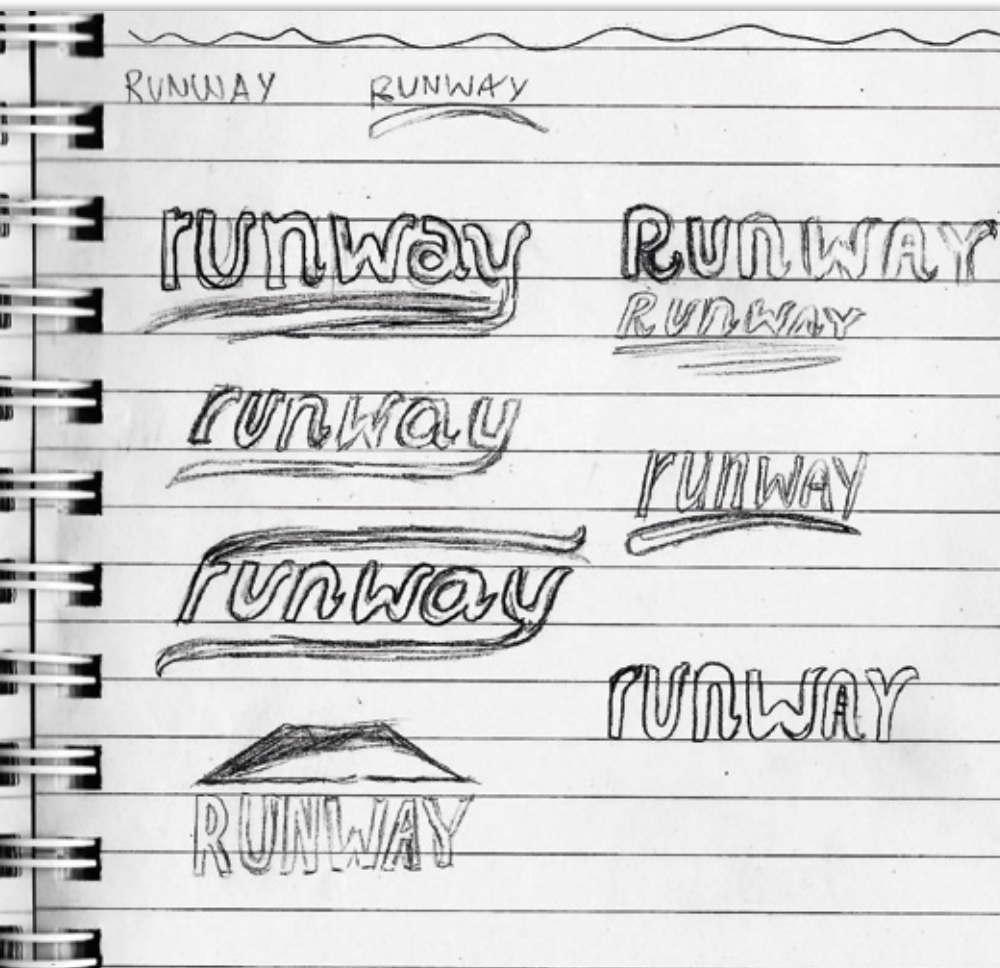 RUNWAY RUNWAY
runway RUnWAY
RUnWAY
runway
runWAY
runway
runWAY
RUNWAY